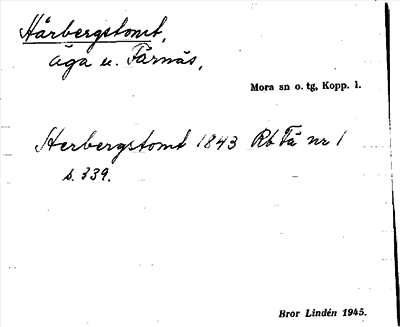 Härbergstomt,
äga u. Färnäs,
Mora sn o. tg, Kopp. l.
Herbergstomt 1843 Rb Fä nr 1
s. 339.
Bror Lindén 1945.